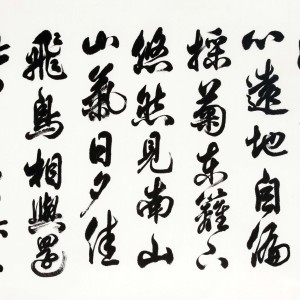 心遠地自偏
採菊東籬下
悠然見南山
山氣日夕佳
飛鳥相與還